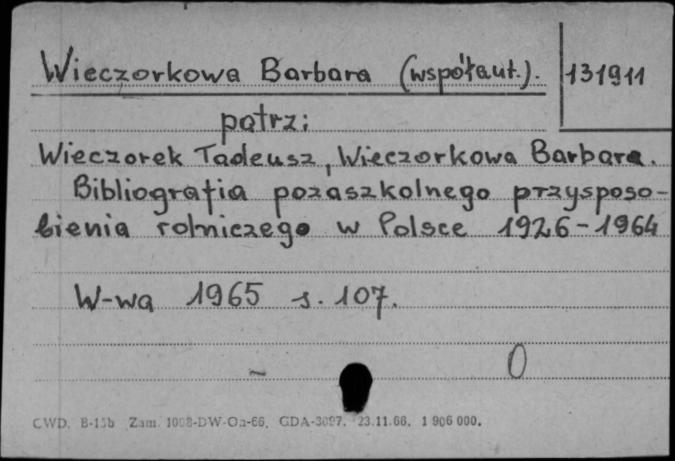 Wieczorkowa Barbara (współaut.). 131911
patrz:
Wieczorek Tadeusz, Wieczorkowa Barbara.
Bibliografia pozaszkolnego przysposo-
bienia rolniczego w Polsce 1926-1964
W-wa 1965 s. 107.
- 0
CWD. B-15b Zam. 1008-DW-Oa-66. GDA-3097. 23.11.66. 1 906 000.